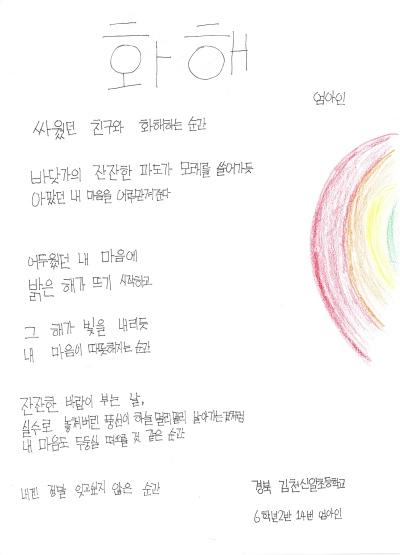 화해
엄아인
싸웠던 친구와 화해하는 순간
바닷가의 잔잔한 파도가 모래를 쓸어가듯
아팠던 내 마음을 어루만져준다
어두웠던 내 마음에
밝은 해가 뜨기 시작하고
그 해가 빛을 내리듯
내 마음이 따뜻해지는 순간
잔잔한 바람이 부는 날,
실수로 놓쳐버린 풍선이 하늘 멀리멀리 날아가는것처럼
내 마음도 두둥실 떠오를 것 같은 순간
내겐 정말 잊고싶지 않은 순간
경북 김천신일초등학교
6학년2반 14번 엄아인